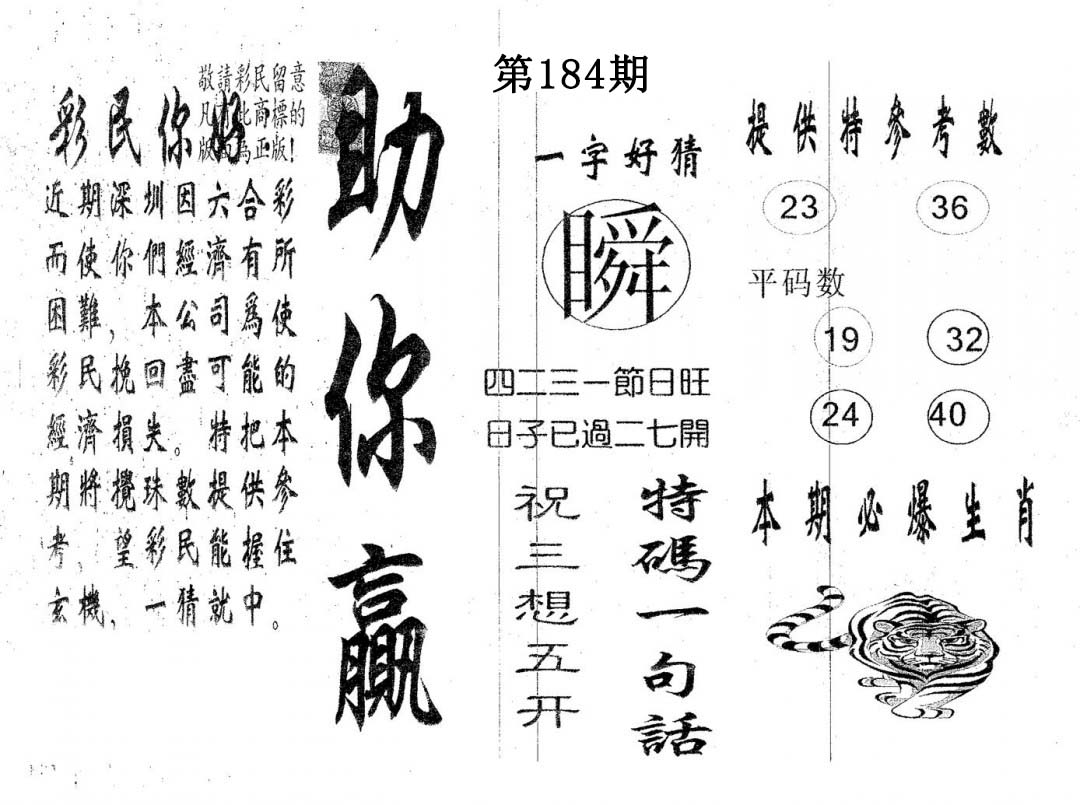 第184期
敬請彩民留意
凡 此商標的
版 為正版!
彩民你好
近期深圳因六合彩
而使你們經濟有所
困難，本公司為使
彩民挽回盡可能的
經濟損失。特把本
期將攪珠數提供參
考，望彩民能握住
玄機，一猜就中。
助你贏
一字好猜
瞬
四二三一節日旺
日子已過二七開
特碼一句話
祝三想五开
提供特參考數
23 36
平码数
19 32
24 40
本期必爆生肖